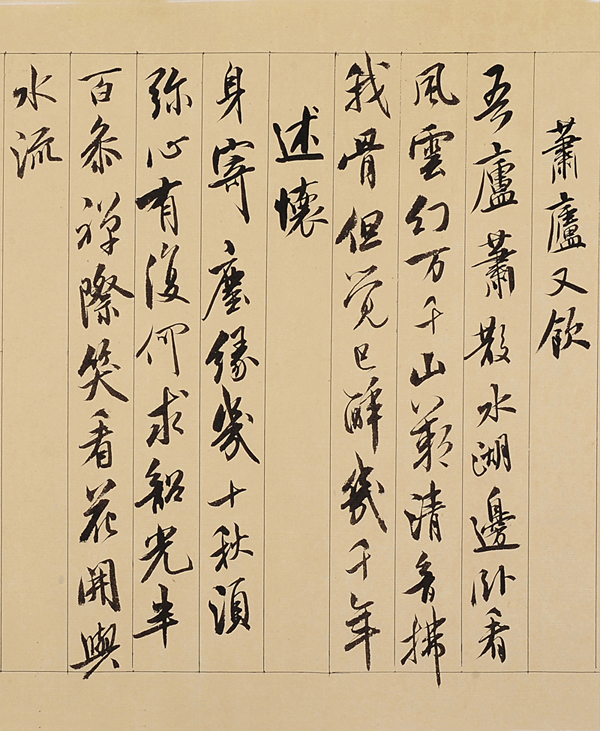 蕭廬又飲
吾廬蕭散水湖邊卧看
風雲幻万千山籁清音拂
我骨但觉已醉幾千年
述懷
身寄塵緣幾十秋須
弥心有復何求韶光半
百参禅際笑看花開與
水流